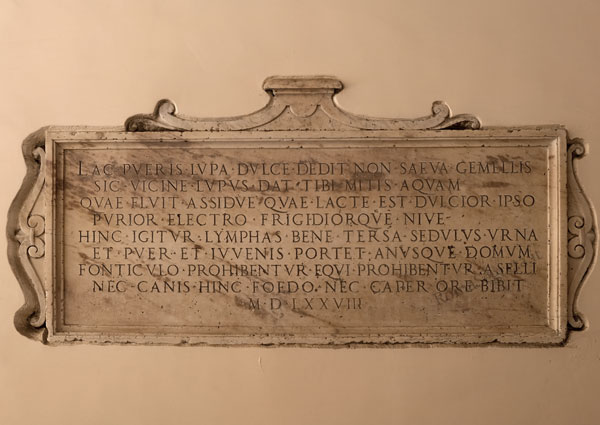 LAC · PVERIS · LVPA · DVLCE · DEDIT · NON · SAEVA · GEMELLIS
SIC · VICINE · LVPVS · DAT · TIBI · MITIS · AQVAM
QVAE · FLVIT · ASSIDVE · QVAE · LACTE · EST · DVLCIOR · IPSO
PVRIOR · ELECTRO · FRIGIDIORQVE · NIVE
HINC · IGITVR · LYMPHAS · BENE · TERSA · SEDVLVS · VRNA
ET · PVER · ET · IVVENIS · PORTET · ANVSQVE · DOMVM
FONTICVLO · PROHIBENTVR · EQVI · PROHIBENTVR · ASELLI
NEC · CANIS · HINC · FOEDO · NEC · CAPER · ORE · BIBIT
M · D · LXXVIII